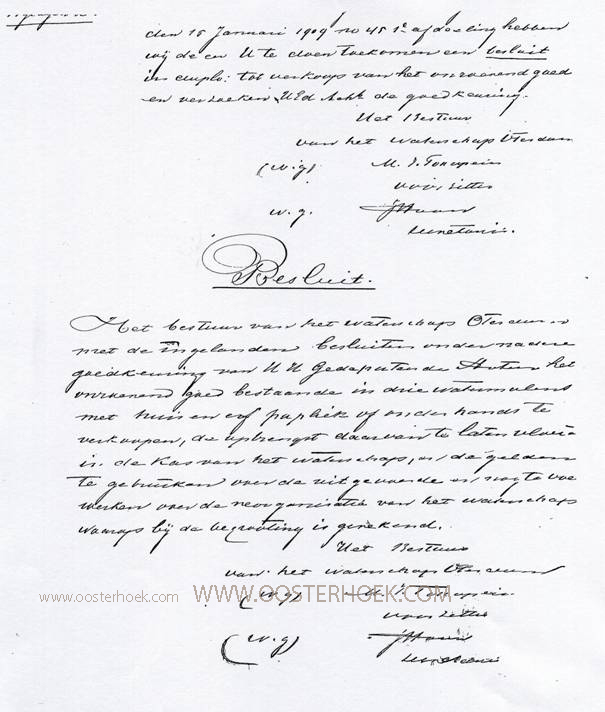 den 15 Januari 1909 no 45 1e afdeeling hebben
wij de eer U te doen toekomen een besluit
in duplo: tot verkoop van het onroerend goed
en verzoeken UEd Acht de goedkeuring.
Het Bestuur
van het waterschap Oterdum
(w.g) M. J.
voorzitter
w.g.
secretaris.
Besluit.
Het bestuur van het waterschap Oterdum
met de ingelanden besluiten onder nadere
goedkeuring van H H Gedeputeerde Staten het
onroerend goed bestaande in drie watermolens
met huis en erf publiek of onderhands te
verkoopen, de opbrengst daarvan te laten vloeien
in de kas van het waterschap, en de gelden
te gebruiken voor de uitgevoerde en nog te voe
werken voor de reorganisatie van het waterschap
waarop bij de begrooting is gerekend.
Het Bestuur
van het waterschap Oterdum
www.oosterhoek.com WWW.OOSTERHOEK.COM
(w.g)
voorzitter
(w.g)
secretaris